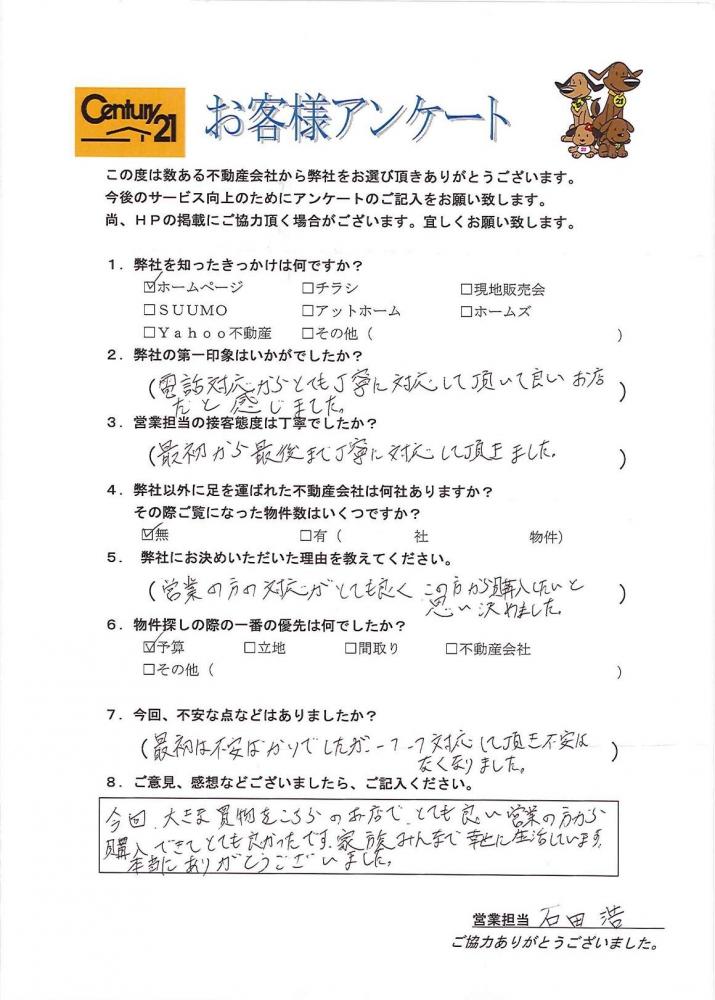 Century 21
お客様アンケート
21
この度は数ある不動産会社から弊社をお選び頂きありがとうございます。
今後のサービス向上のためにアンケートのご記入をお願い致します。
尚、HPの掲載にご協力頂く場合がございます。宜しくお願い致します。
1．弊社を知ったきっかけは何ですか？
☑ホームページ □チラシ □現地販売会
□SUUMO □アットホーム □ホームズ
□Yahoo不動産 □その他（ ）
2．弊社の第一印象はいかがでしたか？
（電話対応からとても丁寧に対応して頂いて良いお店
だと感じました。）
3．営業担当の接客態度は丁寧でしたか？
（最初から最後まで丁寧に対応して頂きました。）
4．弊社以外に足を運ばれた不動産会社は何社ありますか？
その際ご覧になった物件数はいくつですか？
☑無 □有（ 社 物件）
5． 弊社にお決めいただいた理由を教えてください。
（営業の方の対応がとても良く この方から購入したいと
思い決めました。）
6．物件探しの際の一番の優先は何でしたか？
☑予算 □立地 □間取り □不動産会社
□その他（ ）
7．今回、不安な点などはありましたか？
（最初は不安ばかりでしたが、一つ一つ対応して頂き不安は
なくなりました。）
8．ご意見、感想などございましたら、ご記入ください。
今回、大きな買物をこちらのお店で、とても良い営業の方から
購入できてとても良かったです。家族みんなで幸せに生活しています。
本当にありがとうございました。
営業担当 石田 浩
ご協力ありがとうございました。